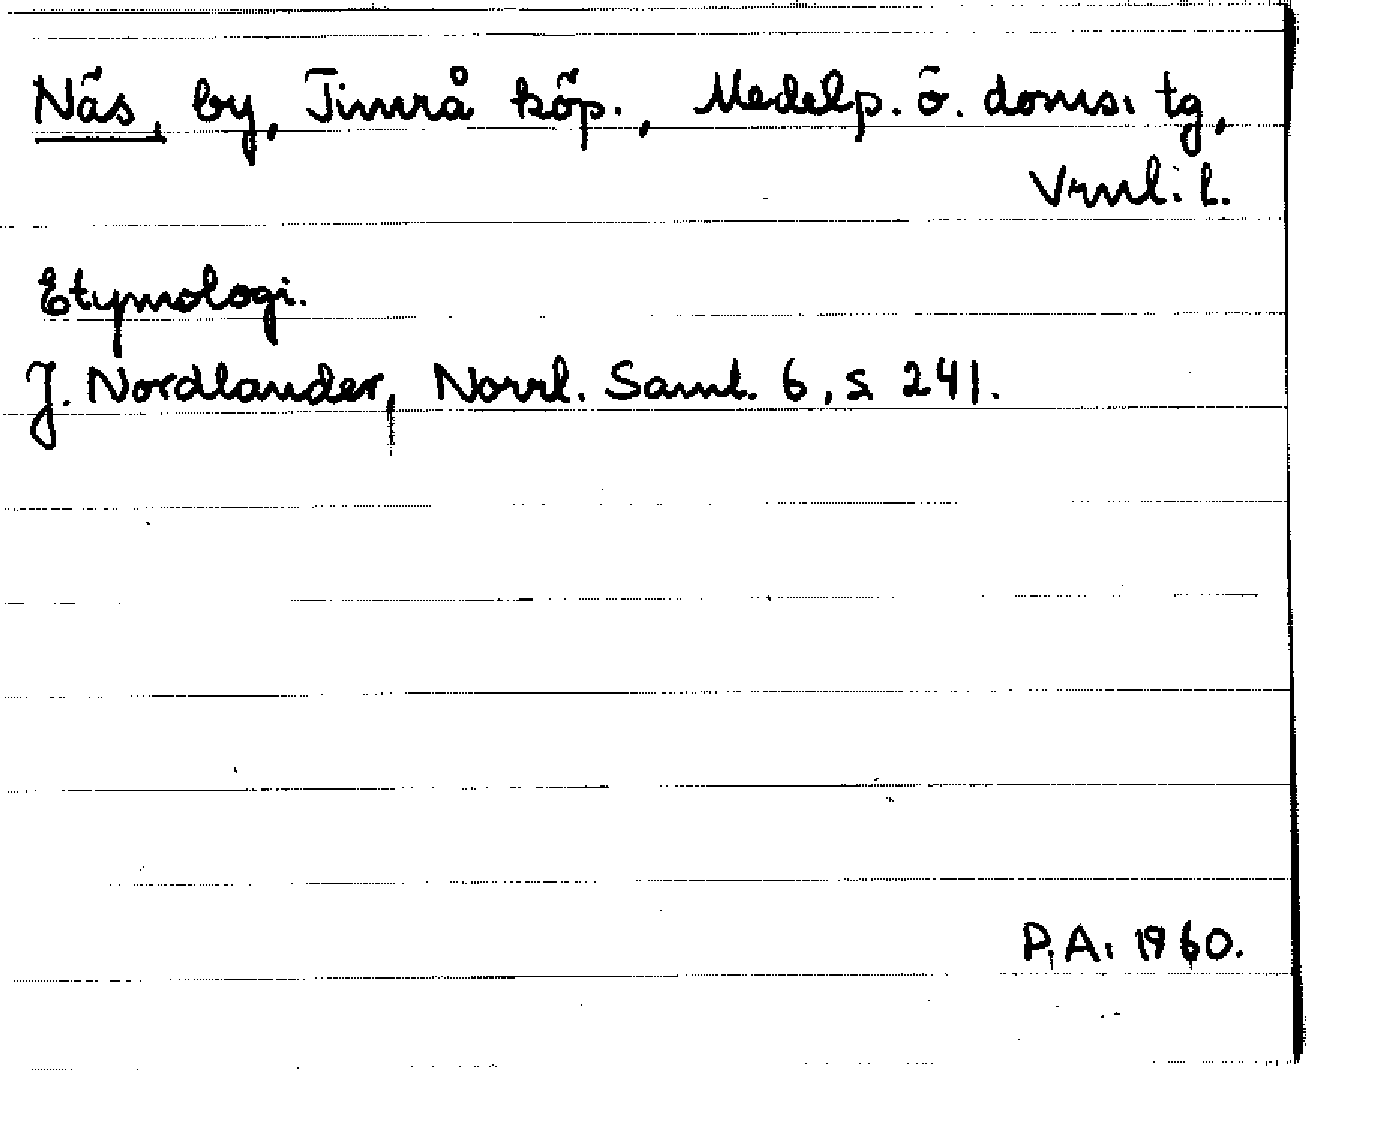 Näs, by, Timrå köp., Medelp. ö. doms. tg,
Vrnl. l.
Etymologi.
J. Nordlander, Norrl. Saml. 6, s 241.
P.A. 1960.